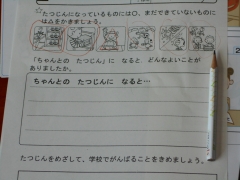 ☆たつじんになっているものには○、まだできていないものには△をかきましょう。
「ちゃんとの たつじん」に なると、どんなよいことがありましたか。
ちゃんとの たつじんに なると…
たつじんをめざして、学校でがんばることをきめましょう。